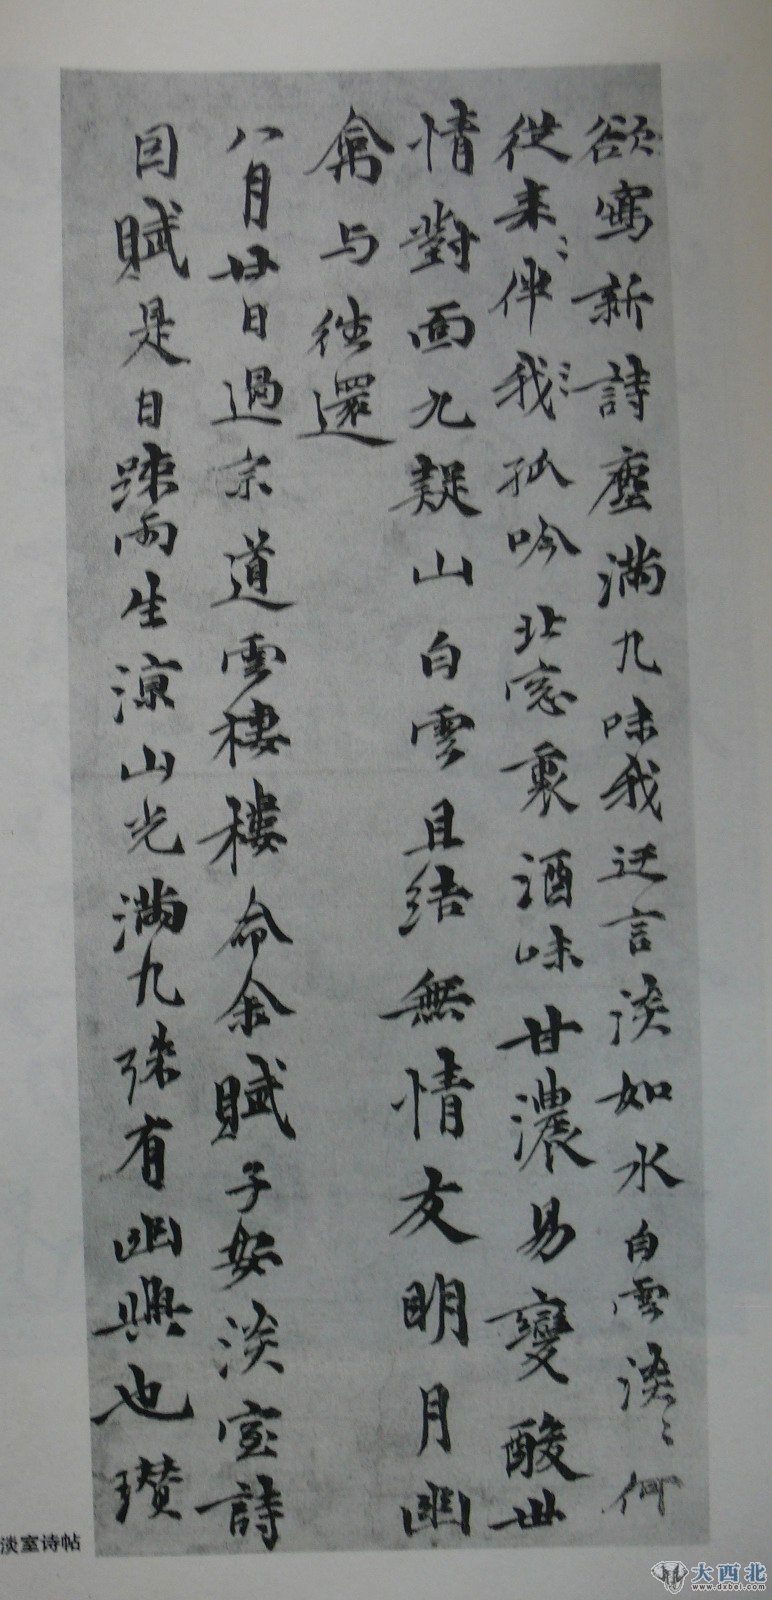 欲寫新詩塵滿几味我迂言淡如水白雲淡〻何
從來〻伴我〻孤吟北窓裏酒味甘濃易變酸世
情對面九疑山白雲且結無情友明月幽
禽与往還
八月廿日過宗道雲樓樓命余賦子安淡室詩
因賦是日疎雨生涼山光滿几殊有幽興也瓚
淡室诗帖
大西北
www.dxbei.com